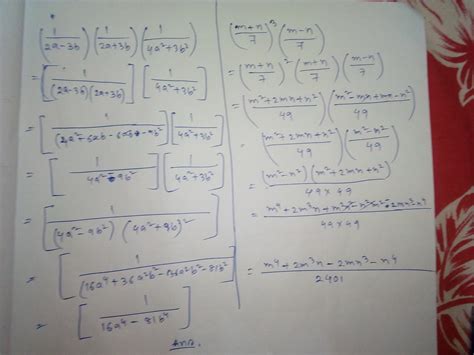 (1/(2a-3b)) (1/(2a+3b)) (1/(4a²+3b²))
= [1/((2a-3b)(2a+3b))] [1/(4a²+3b²)]
= [1/(4a²+6ab-6ab-9b²)] [1/(4a²+3b²)]
= [1/(4a²-9b²)] [1/(4a²+3b²)]
= [1/((4a²-9b²)(4a²+9b)²)]
= [1/(16a⁴+36a²b²-36a²b²-81b²)]
= [1/(16a⁴-81b⁴)]
Ans.
((m+n)/7)³ ((m-n)/7)
= ((m+n)/7)² ((m+n)/7) ((m-n)/7)
= ((m²+2mn+n²)/49) ((m²-mn+mn-n²)/49)
= ((m²+2mn+n²)/49) ((m²-n²)/49)
= (m²-n²)(m²+2mn+n²)/49×49
= /49×49
= m⁴+2m³n-2mn³-n⁴/2401